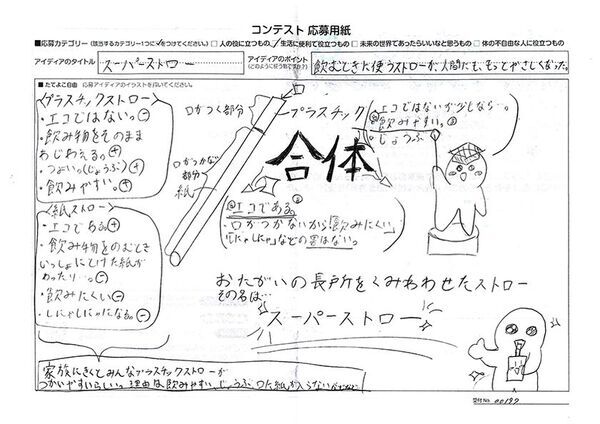 コンテスト 応募用紙
■応募カテゴリー (該当するカテゴリー1つに✓をつけてください。) □人の役に立つもの ✓生活に便利で役立つもの □未来の世界であったらいいなと思うもの □体の不自由な人に役立つもの
アイディアのタイトル スーパーストロー
アイディアのポイント 飲むときた使うストローが、人間にも、もっとやさしくなった。
■たてよこ自由 応募アイディアのイラストを描いてください。
<プラスチックストロー>
・エコではない。⊖
・飲み物をそのまま
あじわえる。⊕
・つよい。(じょうぶ)⊕
・飲みやすい。⊕
<紙ストロー>
・エコである⊕
・飲み物をのむとき
いっしょにとけた紙が
・飲みにくい⊖
・しにゃしにゃになる。⊖
口がつく部分
プラスチック
口がつかない
部分
紙
合体
・エコではないが少しなら…。
・飲みやすい。
・じょうぶ
・エコである。
・口がつかないから「飲みにくい」
「しにゃしにゃ」などの害はない。
おたがいの長所をくみわわせたストロー
その名は…
スーパーストロー
家族にきくとみんなプラスチックストローが
つかいやすいらしい。理由は飲みやすい、じょうぶ、口に紙が入らないなど
受付No. 00197